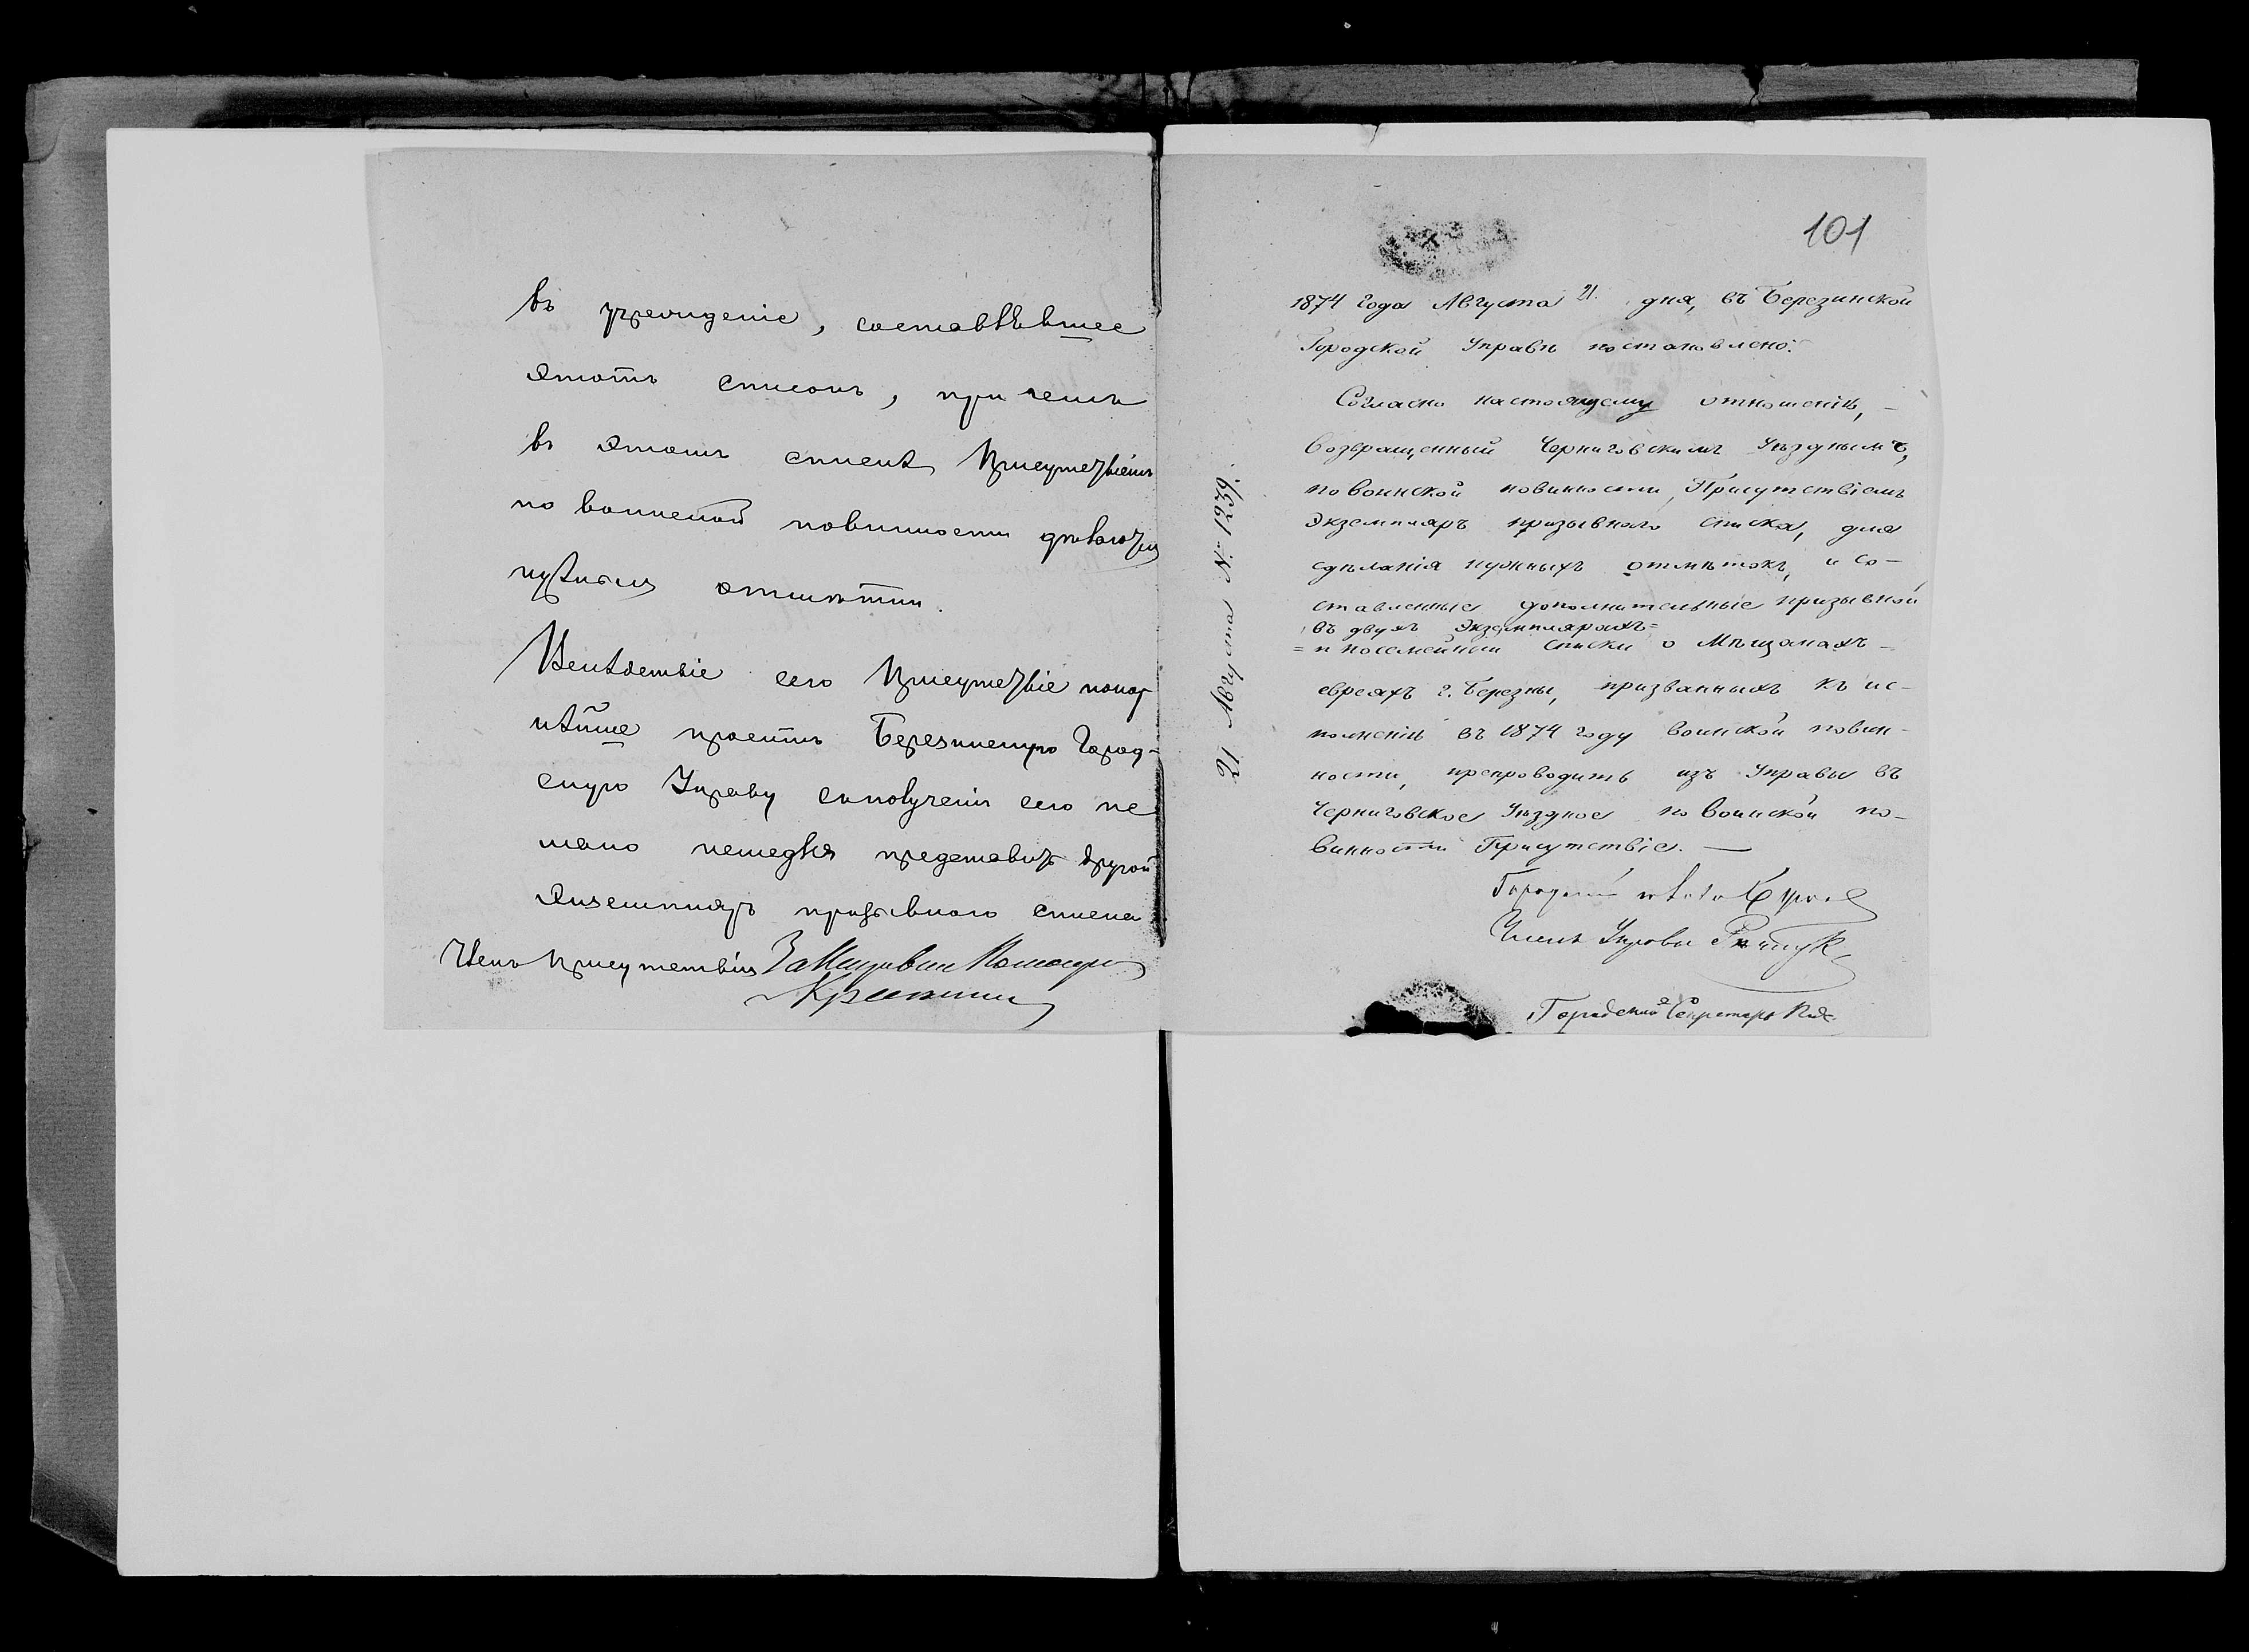 въ учрежденіе, составлѣвшее
этотъ списокъ, при чемъ
въ этомъ спискѣ Присутствіемъ
по воинской повинности дѣлаются
нужныя отмѣтки.
Вслѣдствіе сего Присутствіе покор
нѣйше проситъ Березинскую Город-
скую Управу съ полученія сего не
мало немедля представить другой
экземпляръ призывного списка
Членъ Присутствія
101
1874 года Августа 21 дня, въ Березинской
Городской Управѣ постановлено:
Согласно настоящему отношенію, –
возвращенный Черниговскимъ Уѣзднымъ,
по воинской повинности, Присутствіемъ
экземпляръ призывнаго списка, для
сдѣланія нужныхъ отмѣтокъ, и со-
ставленные дополнительные призывной
въ двухъ экземплярахъ=
= и посемейный списки о Мѣщанахъ
евреяхъ г. Березны, призванныхъ къ ис-
полненію въ 1874 году воинской повин-
ности, препроводить изъ Управы въ
Черниговское Уѣздное по воинской по-
винности Присутствіе. —
Членъ Управы
Городской Секретарь
21 Августа N. 1239.